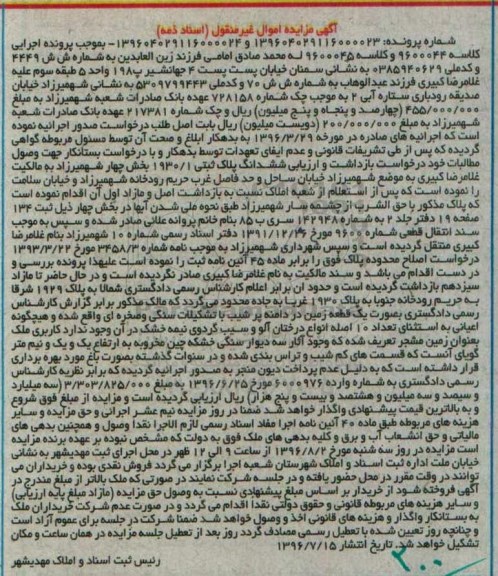 آگهی مزایده اموال غیرمنقول (اسناد ذمه)
شماره پرونده: ۱۳۹۶۰۴۰۲۹۱۱۶۰۰۰۰۲۳ و ۱۳۹۶۰۴۰۲۹۱۱۶۰۰۰۰۲۴- بموجب پرونده اجرایی
کلاسه ۹۶۰۰۰۴۴ و کلاسه ۹۶۰۰۰۴۵ له محمد صادق امامی فرزند زین العابدین به شماره ش ش ۴۴۴۹
و کدملی ۰۳۸۵۹۴۰۶۲۹ به نشانی سمنان خیابان پست پست ۴ جهانشیر پ۱۹۸ واحد ۵ طبقه سوم علیه
غلامرضا کبیری فرزند عبدالوهاب به شماره ش ش ۷۰ و کدملی ۵۳۰۹۷۹۹۴۴۳ به نشانی شهمیرزاد خیابان
صدیقه رودباری ستاره آبی ۲ به موجب چک شماره ۷۲۸۱۵۸ عهده بانک صادرات شعبه شهمیرزاد به مبلغ
۴۵۵/۰۰۰/۰۰۰ (چهارصد و پنجاه و پنج میلیون) ریال و چک شماره ۲۱۷۳۸۱ عهده بانک صادرات شعبه
شهمیرزاد به مبلغ ۲۰۰/۰۰۰/۰۰۰ (دویست میلیون) ریال بابت اصل طلب درخواست صدور اجرائیه نموده
است که اجرائیه های صادره در مورخه ۱۳۹۶/۳/۲۹ به بدهکار ابلاغ و صحت آن توسط مسئول مربوطه گواهی
گردیده که پس از طی تشریفات قانونی و عدم ایفای تعهدات توسط بدهکار و با درخواست بستانکار جهت وصول
مطالبات خود درخواست بازداشت و ارزیابی ششدانگ پلاک ثبتی ۱۹۳۰/۱ بخش چهار شهمیرزاد به مالکیت
غلامرضا کبیری به موضع شهمیرزاد خیابان ساحل و حد فاصل غرب حریم رودخانه شهمیرزاد و خیابان سلامت
را نموده است که پس از استعلام از شعبه املاک نسبت به بازداشت اصل و مازاد اول آن اقدام نموده است
که پلاک مذکور با حق الشرب از چشمه سار شهمیرزاد طبق نحوه ملی شدن آبها در بخش چهار ذیل ثبت ۱۳۴
صفحه ۱۹ دفتر جلد ۲ به شماره ۱۴۲۹۴۸ سری ب ۸۵ بنام خانم پروانه علائی صادر شده و سپس به موجب
سند انتقال قطعی شماره ۹۶۰۰ مورخ ۱۳۹۱/۱۲/۲۶ دفتر اسناد رسمی شماره ۱۰ شهمیرزاد بنام غلامرضا
کبیری منتقل گردیده است و سپس شهرداری شهمیرزاد به موجب نامه شماره ۳۴۵۸/۳ مورخ ۱۳۹۳/۳/۲۲
درخواست اصلاح محدوده پلاک فوق را برابر ماده ۴۵ آئین نامه ثبت را نموده است علیهذا پرونده بررسی و
در دست اقدام می باشد و سند مالکیت به نام غلامرضا کبیری صادر نگردیده است و در حال حاضر تا مازاد
سیزدهم بازداشت گردیده است و حدود آن برابر اعلام کارشناس رسمی دادگستری شمالا به پلاک ۱۹۲۹ شرقا
به حریم رودخانه جنوبا به پلاک ۱۹۳۰ غربا به جاده محدود می‌گردد که مالک مذکور برابر گزارش کارشناس
رسمی دادگستری بصورت یک قطعه زمین در دامنه پر شیب با تشکیلات سنگی و صخره ای واقع شده و هیچگونه
اعیانی به استثنای تعداد ۱۰ اصله انواع درختان آلو و سیب گردوی نیمه خشک در آن وجود ندارد کاربری ملک
بعنوان زمین مشجر تعریف شده که وجود آثار سه دیوار سنگی خشکه چین مخروبه به ارتفاع یک و یک و نیم متر
گویای آنست که قسمت های کم شیب و تراس بندی شده و در سنوات گذشته بصورت باغ مورد بهره برداری
قرار داشته است که به دلیل عدم پرداخت دیون منجر به صدور اجرائیه گردیده که برابر نظریه کارشناس
رسمی دادگستری به شماره وارده ۶۰۰۰۹۷۶ مورخ ۱۳۹۶/۶/۲۵ به مبلغ ۳/۳۰۳/۸۲۵/۰۰۰ (سه میلیارد
و سیصد و سه میلیون و هشتصد و بیست و پنج هزار) ریال ارزیابی گردیده است و مزایده از مبلغ فوق شروع
و به بالاترین قیمت پیشنهادی واگذار خواهد شد ضمنا در روز مزایده نیم عشر اجرائی و حق مزایده و سایر
هزینه های مربوطه طبق ماده ۴۰ آئین نامه اجرا مفاد اسناد رسمی لازم الاجرا نقدا وصول و همچنین بدهی های
مالیاتی و حق انشعاب آب و برق و کلیه بدهی های ملک فوق به دولت که مشخص نبوده بر عهده برنده مزایده
است مزایده در روز سه شنبه مورخ ۱۳۹۶/۸/۲ از ساعت ۹ الی ۱۲ ظهر در محل اجرای ثبت مهدیشهر به نشانی
خیابان ملت اداره ثبت اسناد و املاک شهرستان شعبه اجرا برگزار می گردد فروش نقدی بوده و خریداران می
توانند در وقت مقرر در محل حضور یافته و در جلسه شرکت نمایند در صورتی که ملک بالاتر از مبلغ مندرج در
آگهی فروخته شود از خریدار بر اساس مبلغ پیشنهادی نسبت به وصول حق مزایده (مازاد مبلغ پایه ارزیابی)
و سایر هزینه های مربوطه قانونی و حقوق دولتی نقدا اقدام می گردد و در صورت عدم شرکت خریداران ملک
به بستانکار واگذار و هزینه های قانونی اخذ و وصول خواهد شد ضمنا شرکت در جلسه برای عموم آزاد است
و چنانچه روز تعیین شده با تعطیل رسمی مصادف گردد روز بعد از تعطیل جلسه مزایده در همان ساعت و مکان
تشکیل خواهد شد. تاریخ انتشار ۱۳۹۶/۷/۱۵
رئیس ثبت اسناد و املاک مهدیشهر